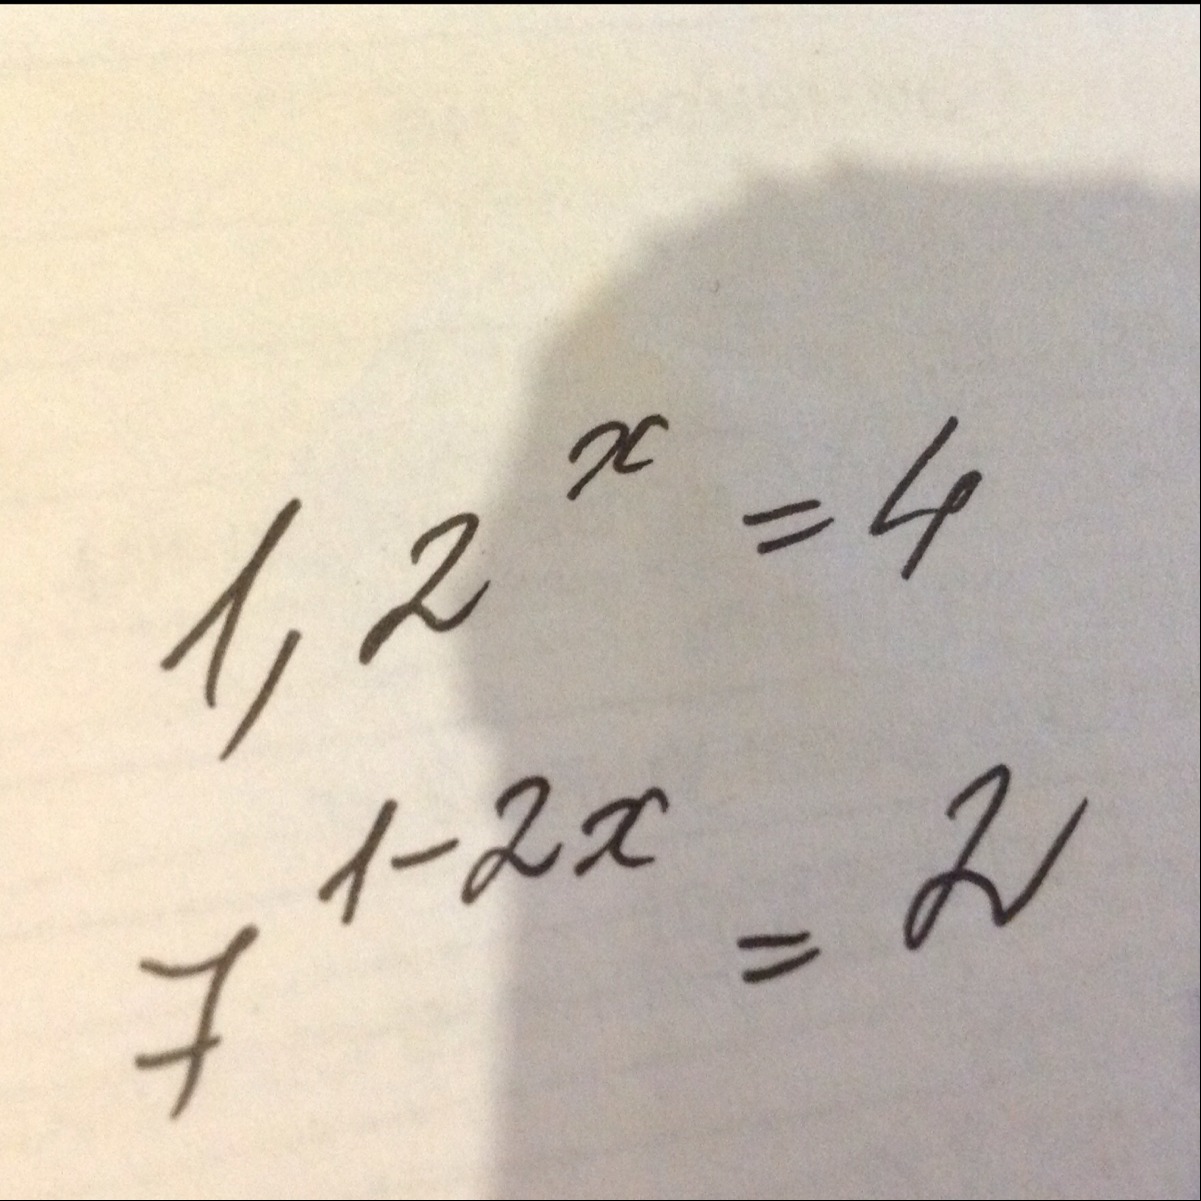 1,2^x = 4
7^{1-2x} = 2